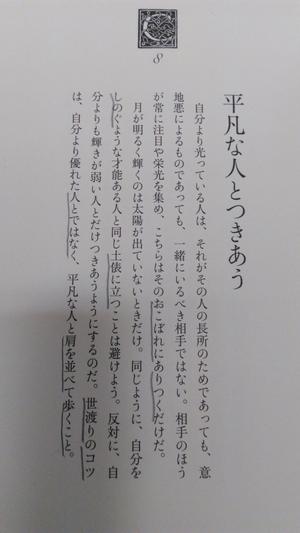 C
8
平凡な人とつきあう
自分より光っている人は、それがその人の長所のためであっても、意
地悪によるものであっても、一緒にいるべき相手ではない。相手のほう
が常に注目や栄光を集め、こちらはそのおこぼれにありつくだけだ。
月が明るく輝くのは太陽が出ていないときだけ。同じように、自分を
しのぐような才能ある人と同じ土俵に立つことは避けよう。反対に、自
分よりも輝きが弱い人とだけつきあうようにするのだ。世渡りのコツ
は、自分より優れた人とではなく、平凡な人と肩を並べて歩くこと。